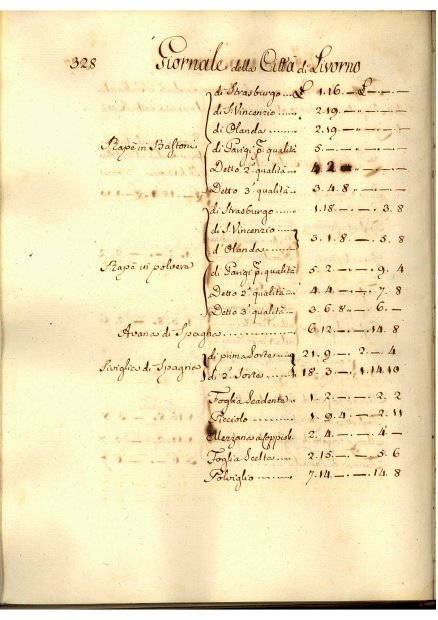 328 Giornale della Città di Livorno
di Strasburgo ... £ 1.16 - £ - -
di S. Vincenzio ... 2.19 - " - -
di Olanda ........ 2.19 - " - -
Rapè in Bastoni di Parigi pᵃ. qualità 5. - - " - -
Detto 2ᵃ qualità .. 4. 2 - -
Detto 3ᵃ qualità .. 3. 4. 8 " - -
di Strasburgo ..... 1.18 - - . 3. 8
di S. Vincenzio ....
d'Olanda ........ 3. 1. 8 - . 5. 8
Rapà in polvere di Parigi pᵃ. qualità 5. 2 - - . 9. 4
Detto 2ᵃ qualità .. 4. 4. - - . 7. 8
Detto 3ᵃ qualità .. 3. 6. 8 - . 6. -
Avana di Spagna ............ 6.12. - - .14. 8
Siviglia di Spagna di prima Sorte ... 21. 9. - . 2. - . 4
di 2ᵃ Sorte .... 18. 3. - . 1.14.10
Foglia Scadente .. 1. 2. - - . 2. 2
Picciolo ....... 1. 9. 4 - . 2. 11
Mezzana 2. 4. - - . 4. -
Foglia Scelta .... 2.15. - - . 5. 6
Polviglio ....... 7.14. - - .14. 8